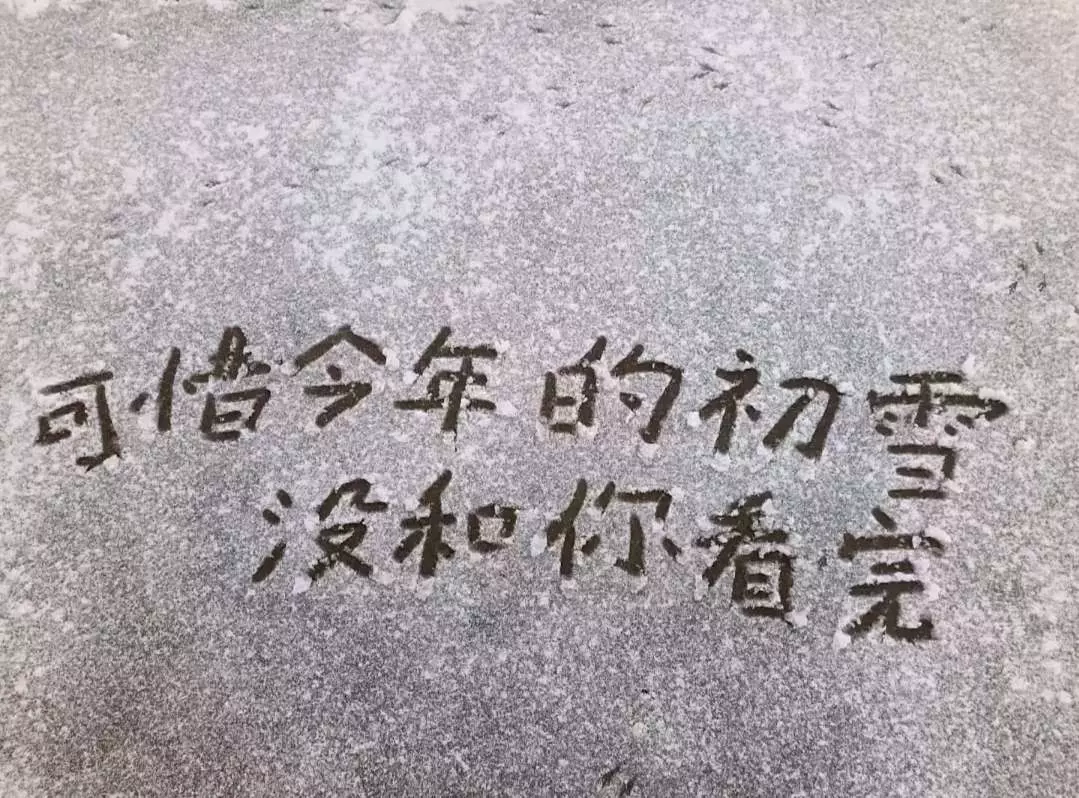 可惜今年的初雪
没和你看完